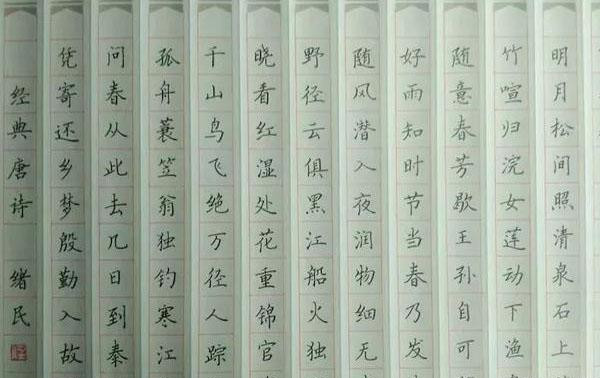 明月松间照清泉石上
竹喧归浣女莲动下渔
随意春芳歇王孙自可
好雨知时节当春乃发
随风潜入夜润物细无
野径云俱黑江船火独
晓看红湿处花重锦官
千山鸟飞绝万径人踪
孤舟蓑笠翁独钓寒江
问春从此去几日到秦
凭寄还乡梦殷勤入故
经典唐诗 绪民